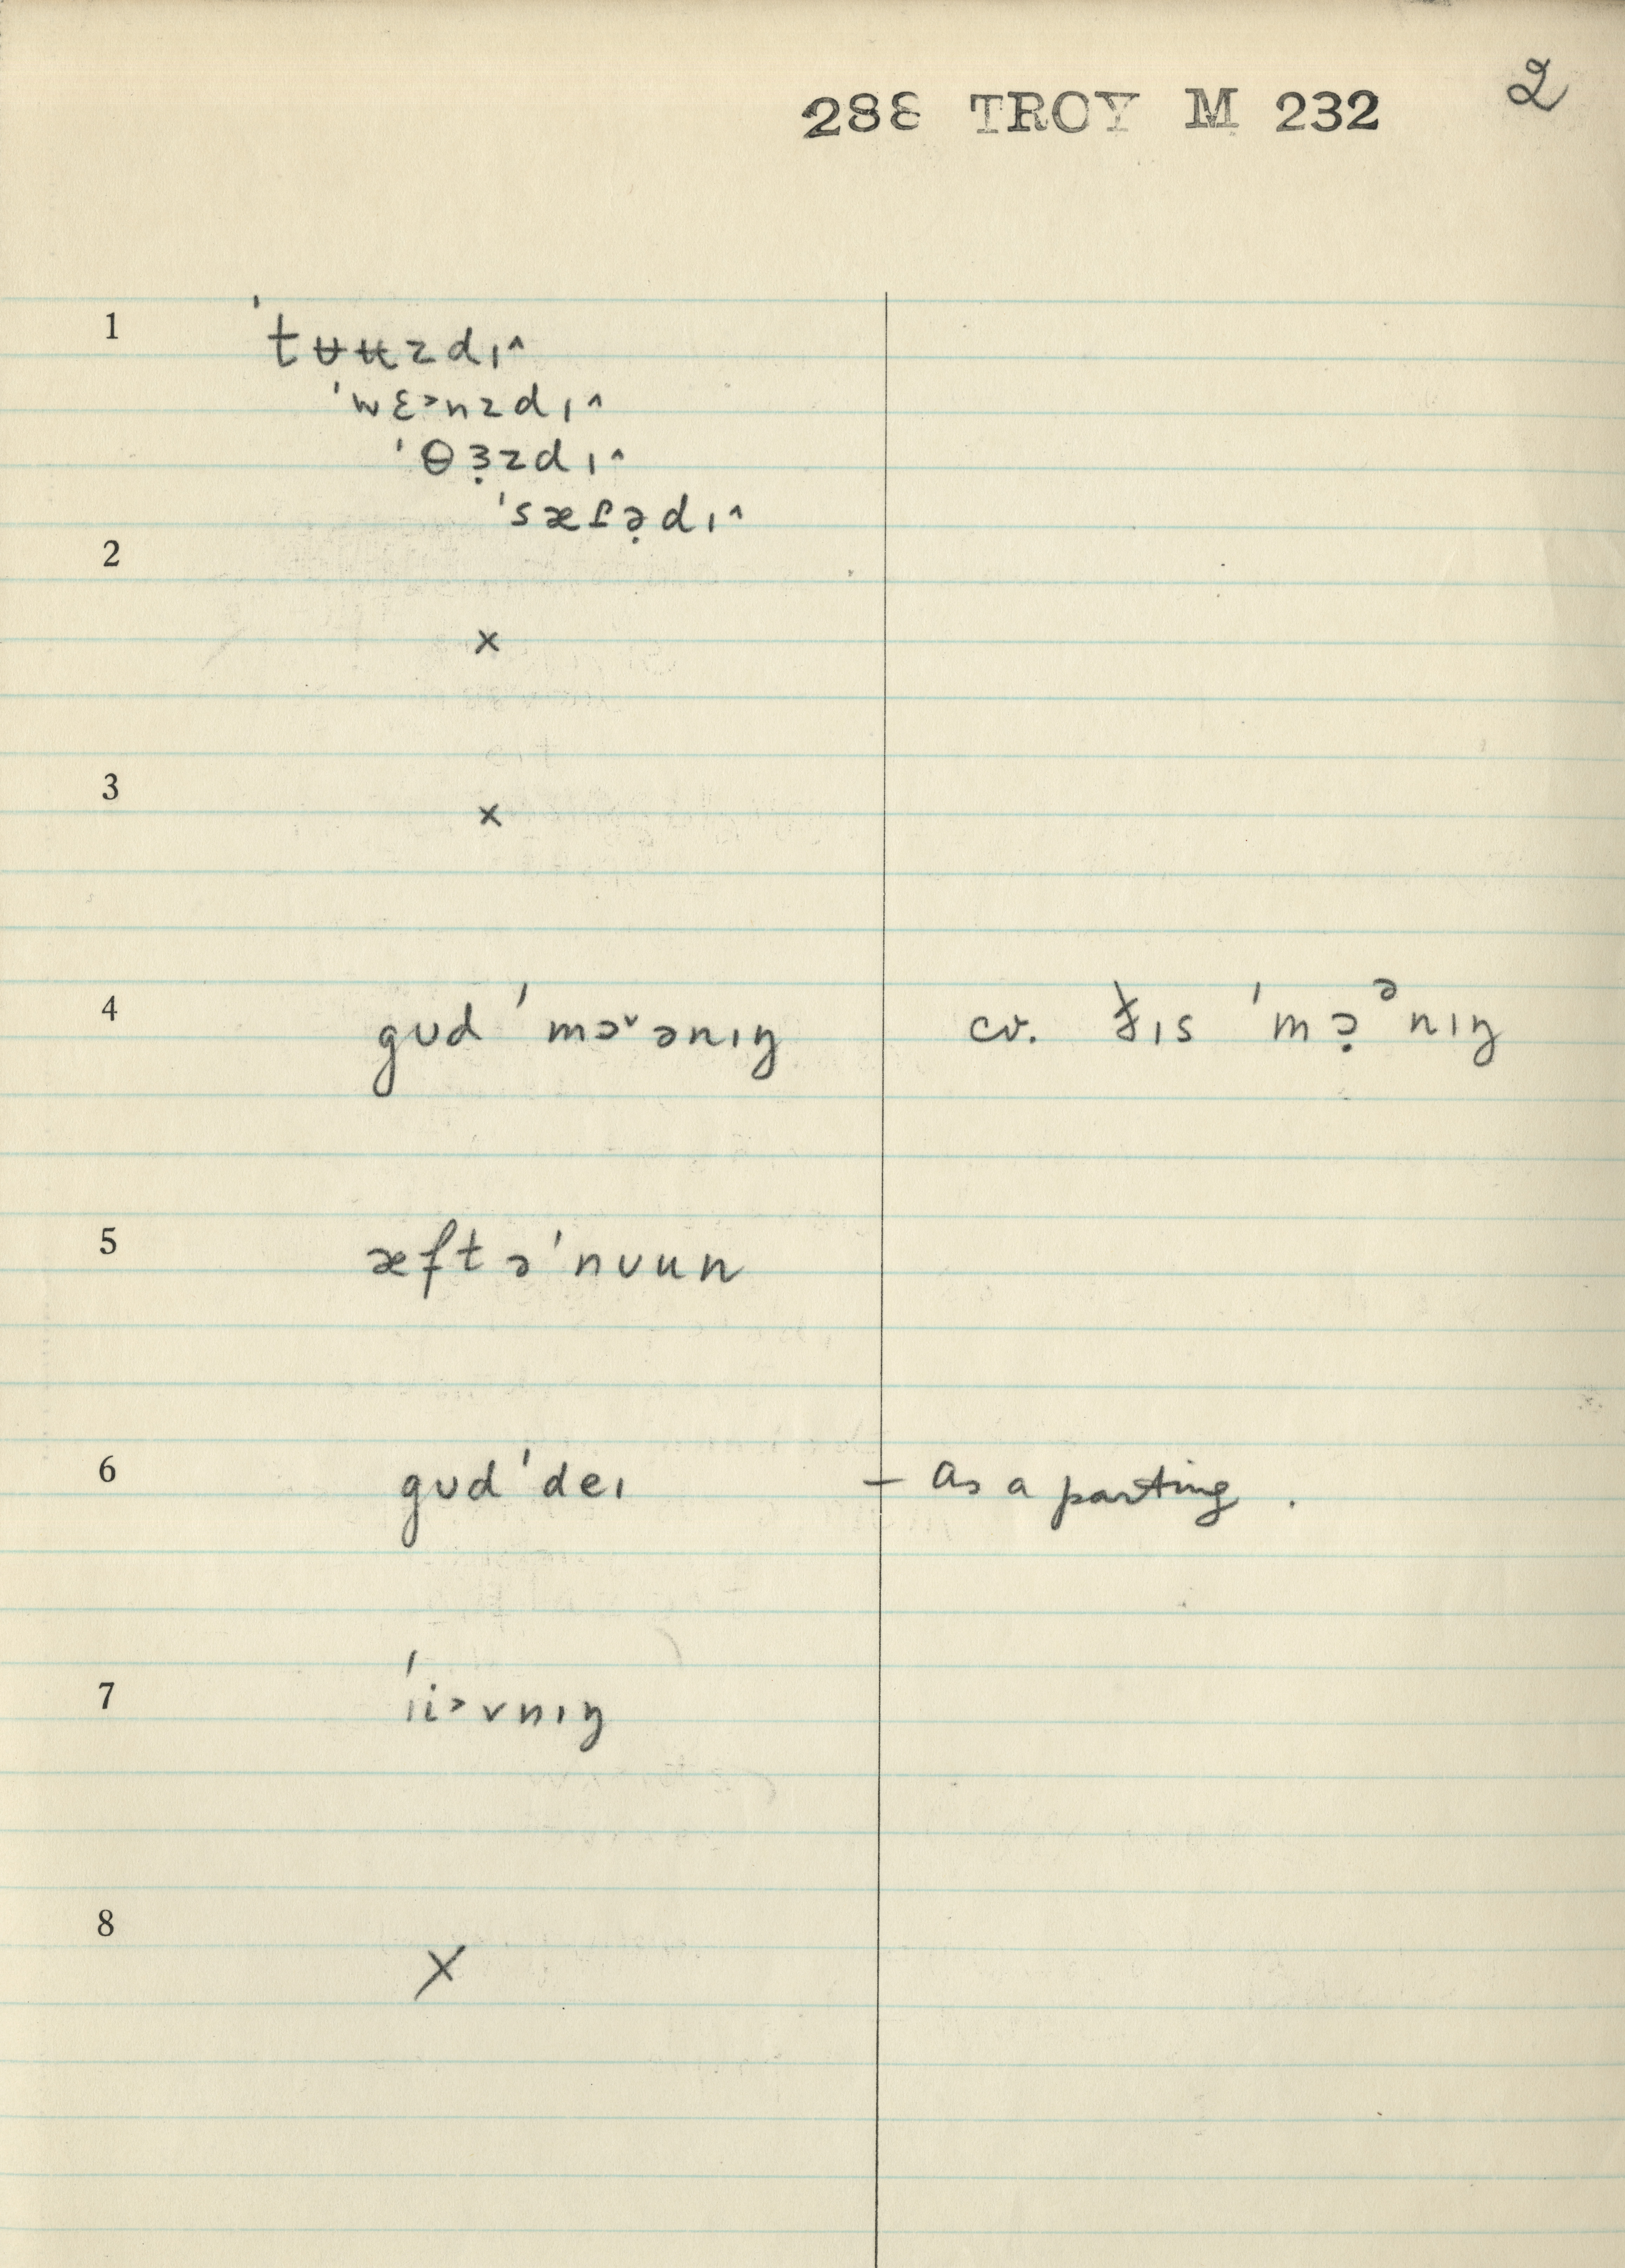 288 TROY M 232 2
1 ˈtʊ̵ʉzdɪ^
ˈwɛ˃nzdɪ^
ˈθɜ̣zdɪ^
ˈsæɾə̣dɪ^
2 ×
3 ×
4 gʊd ˈmɔ˅ənɪŋ cv. ðɪs ˈmɔ̣ᵊnɪŋ
5 æftəˈnʊun
6 gʊdˈdeɪ – as a parting.
7 ˈɪi˃vnɪŋ
8 ×